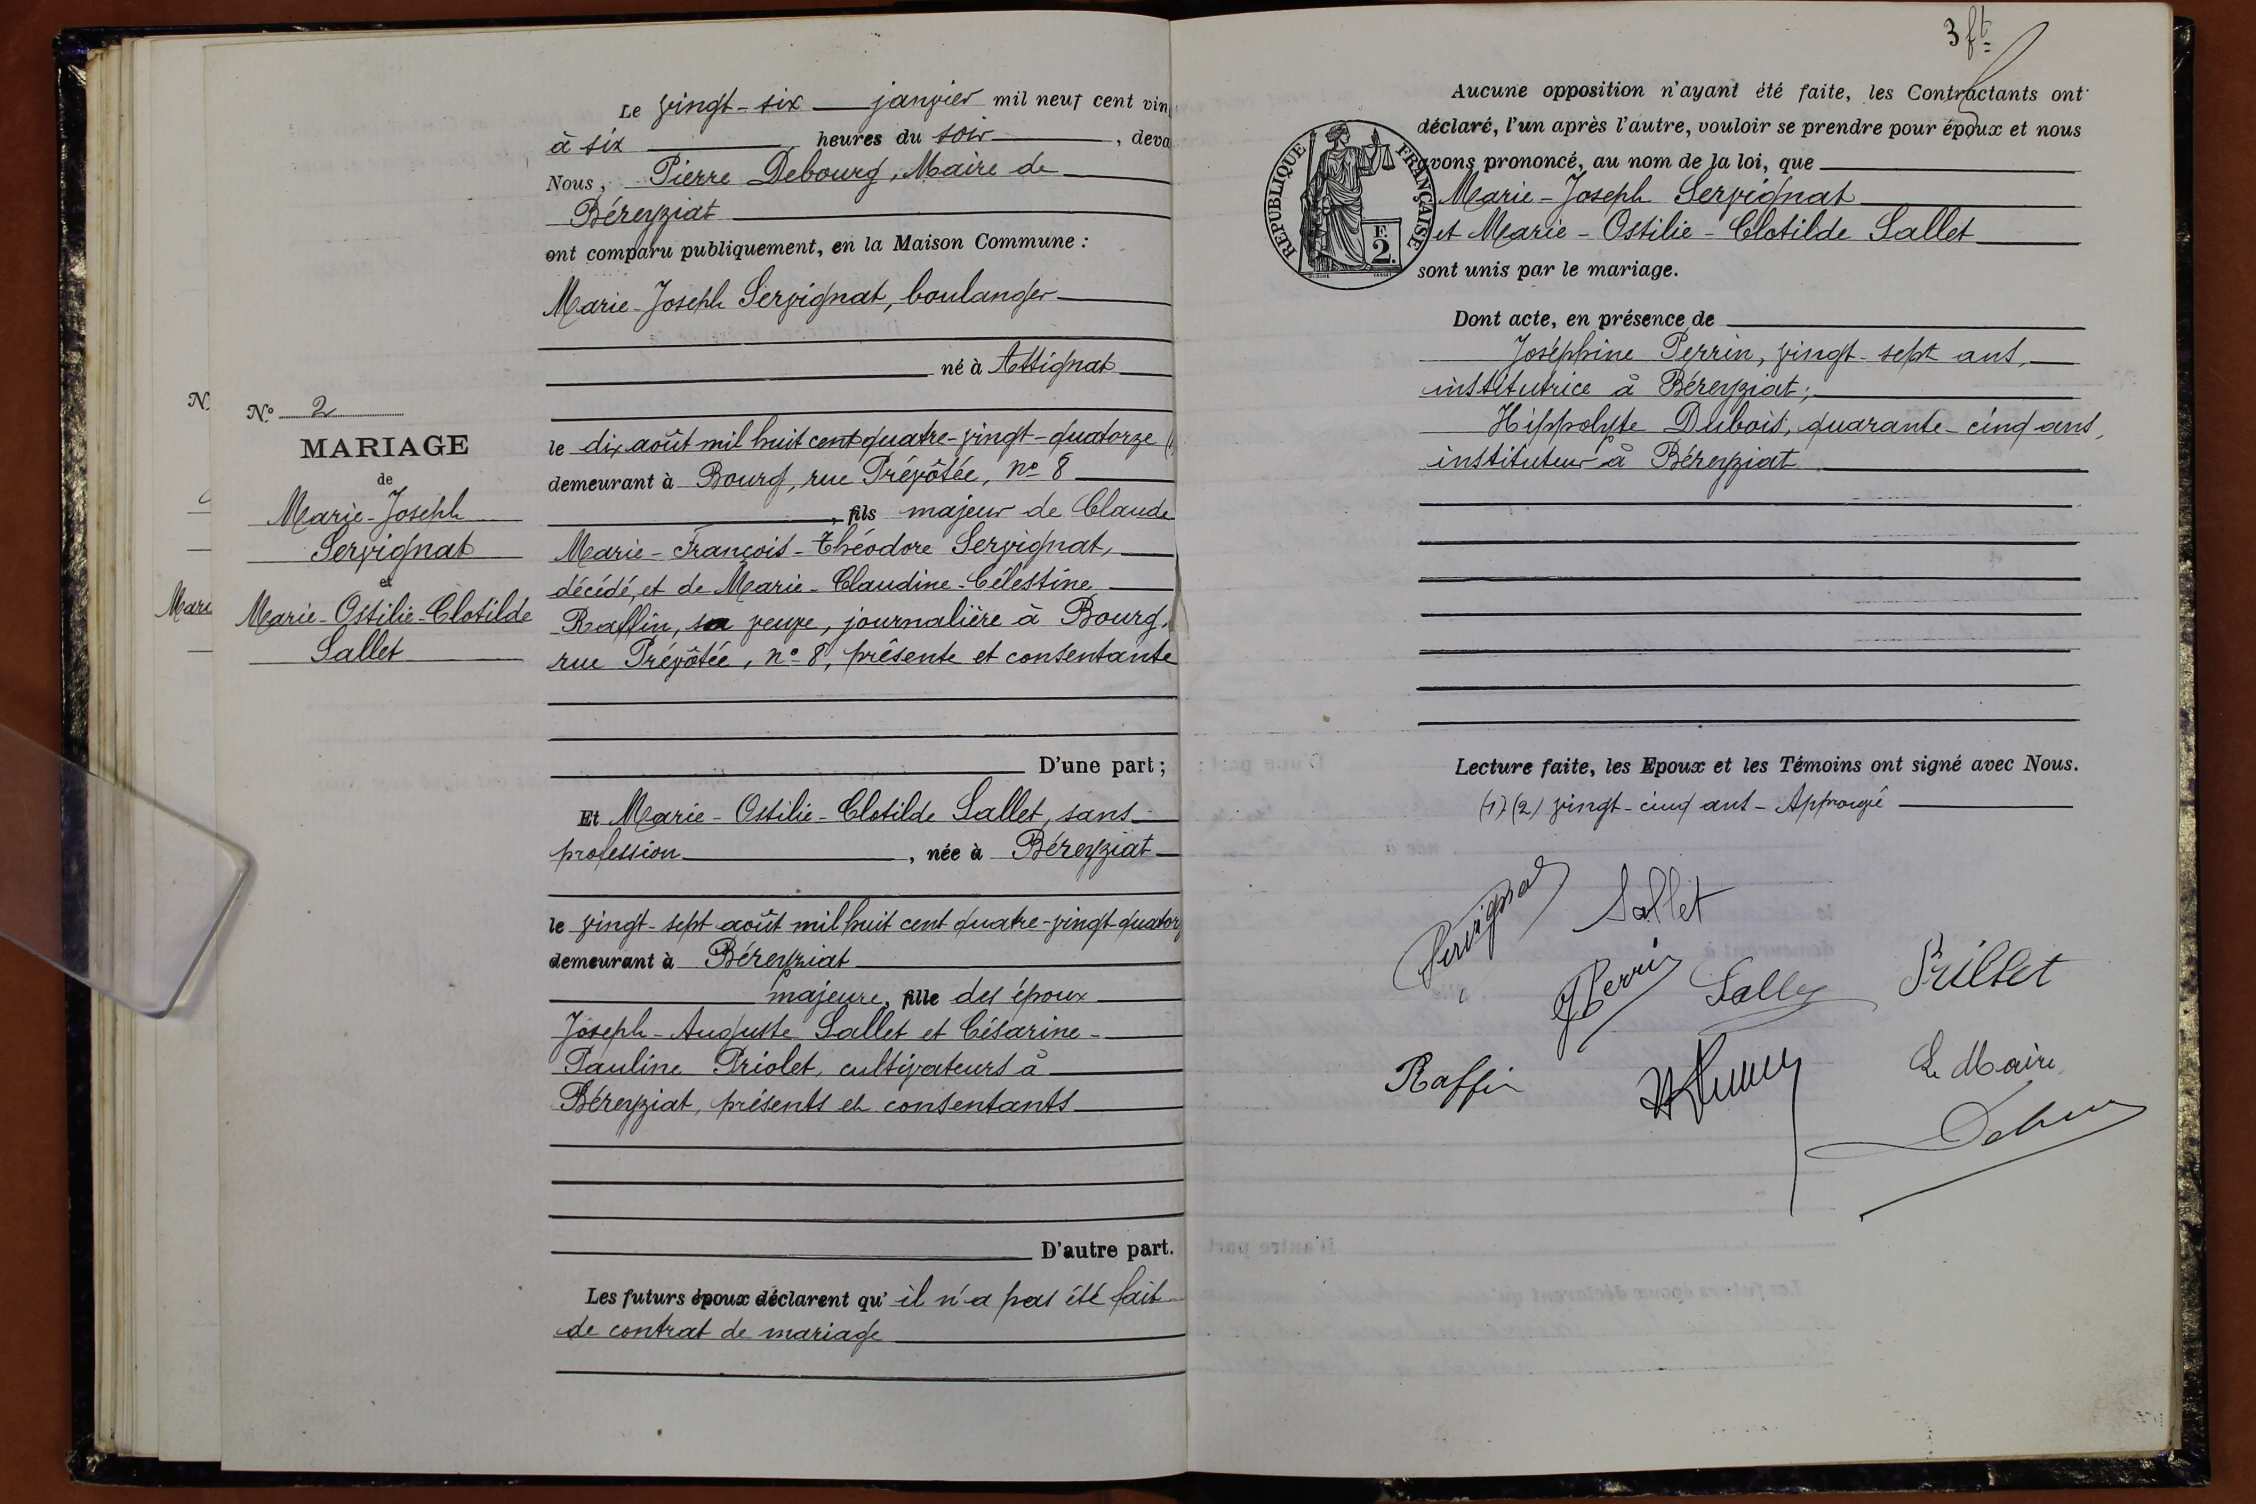 Le vingt-six janvier mil neuf cent vin
à six heures du soir, deva
Nous, Pierre Debourg, Maire de
Béreyziat
ont comparu publiquement, en la Maison Commune :
Marie-Joseph Servignat, boulanger
né à Attignat
N.
Mari
No 2
MARIAGE
de
Marie-Joseph
Servignat
et
Marie-Ostilie-Clotilde
Sallet
le dix août mil huit cent quatre-vingt-quatorze (
demeurant à Bourg, rue Prévôtée, no 8
, fils majeur de Claude
Marie-François-Théodore Servignat,
décédé, et de Marie-Claudine-Célestine
Raffin, sa veuve, journalière à Bourg,
rue Prévôtée, no 8, présente et consentante
D'une part ;
Et Marie-Ostilie-Clotilde Sallet, sans
profession, née à Béreyziat
le vingt-sept août mil huit cent quatre-vingt-quatorz
demeurant à Béreyziat
majeure, fille des époux
Joseph-Auguste Sallet et Césarine-
Pauline Priolet, cultivateurs à
Béreyziat, présents et consentants
D'autre part.
Les futurs époux déclarent qu'il n'a pas été fait
de contrat de mariage
3 ft
Aucune opposition n'ayant été faite, les Contractants ont
déclaré, l'un après l'autre, vouloir se prendre pour époux et nous
avons prononcé, au nom de la loi, que
Marie-Joseph Servignat
et Marie-Ostilie-Clotilde Sallet
sont unis par le mariage.
REPUBLIQUE FRANÇAISE
F.
2.
Dont acte, en présence de
Joséphine Perrin, vingt-sept ans,
institutrice à Béreyziat ;
Hippolyte Dubois, quarante-cinq ans,
instituteur à Béreyziat
Lecture faite, les Epoux et les Témoins ont signé avec Nous.
(1) (2) vingt-cinq ans - Approuvé
Servignat
Sallet
J Perrin
Sallet
Raffin
Le Maire